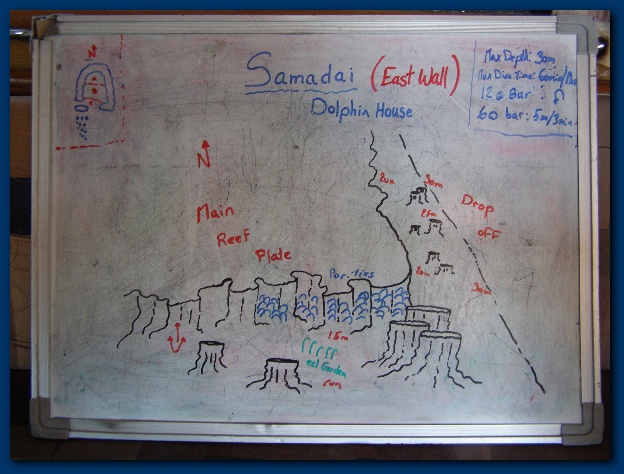 N
Samadai (East Wall)
Dolphin House
Max Depth: 30m
Max Dive Time: 60min/
120 Bar :
60 bar: 5m/3min
N
Main
Reef
Plate
20m
30m
25m
Drop
off
20m
30m
Por. ties
15m
eel Garden